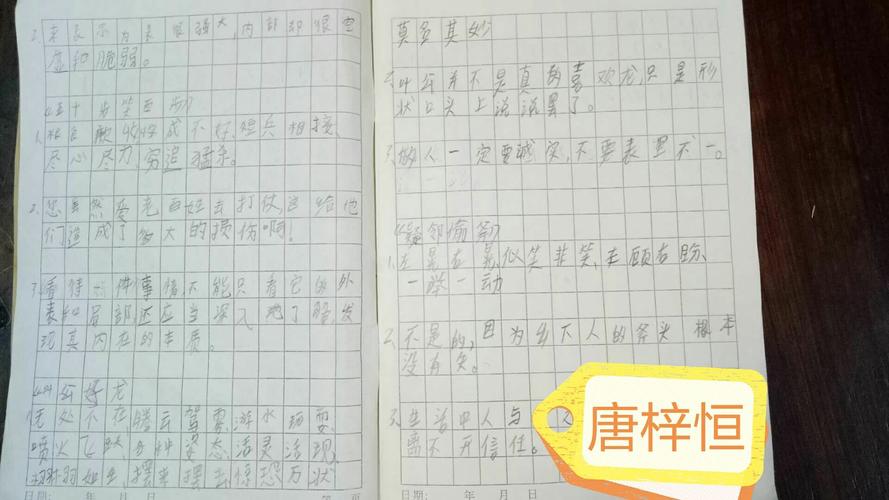 2.来表示为表很强大,内部却很空
虚和脆弱。
《五十步笑百步》
1. 收成不好,短兵相接、
尽心尽力、穷追猛杀。
2.您虽然爱 百姓去打仗,这给他
们造成了多大的损伤啊!
3.看待一件事情不能只看它的外
表和局部,还应当深入地了解,发
现其内在的本质。
《叶公好龙》
1.无处不在、腾云驾雾、游水玩耍、
喷火飞跃、多种姿态、活灵活现、
栩栩如生、摆来摆去、惊恐万状
日期: 年 月 日 第 页
莫名其妙
2.叶公并不是真的喜欢龙,只是形
状口头上说说罢了。
3.做人一定要诚实,不要表里不一。
《疑邻偷斧》
1.左晃右晃、似笑非笑、左顾右盼、
一举一动
2.不是的,因为乡下人的斧头根本
没有失。
3.生活中人与人
离不开信任。
日期: 年 月 日
唐梓恒